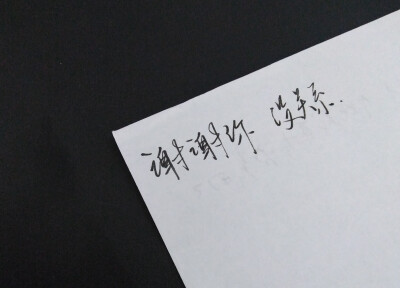 谢谢你 没关系.